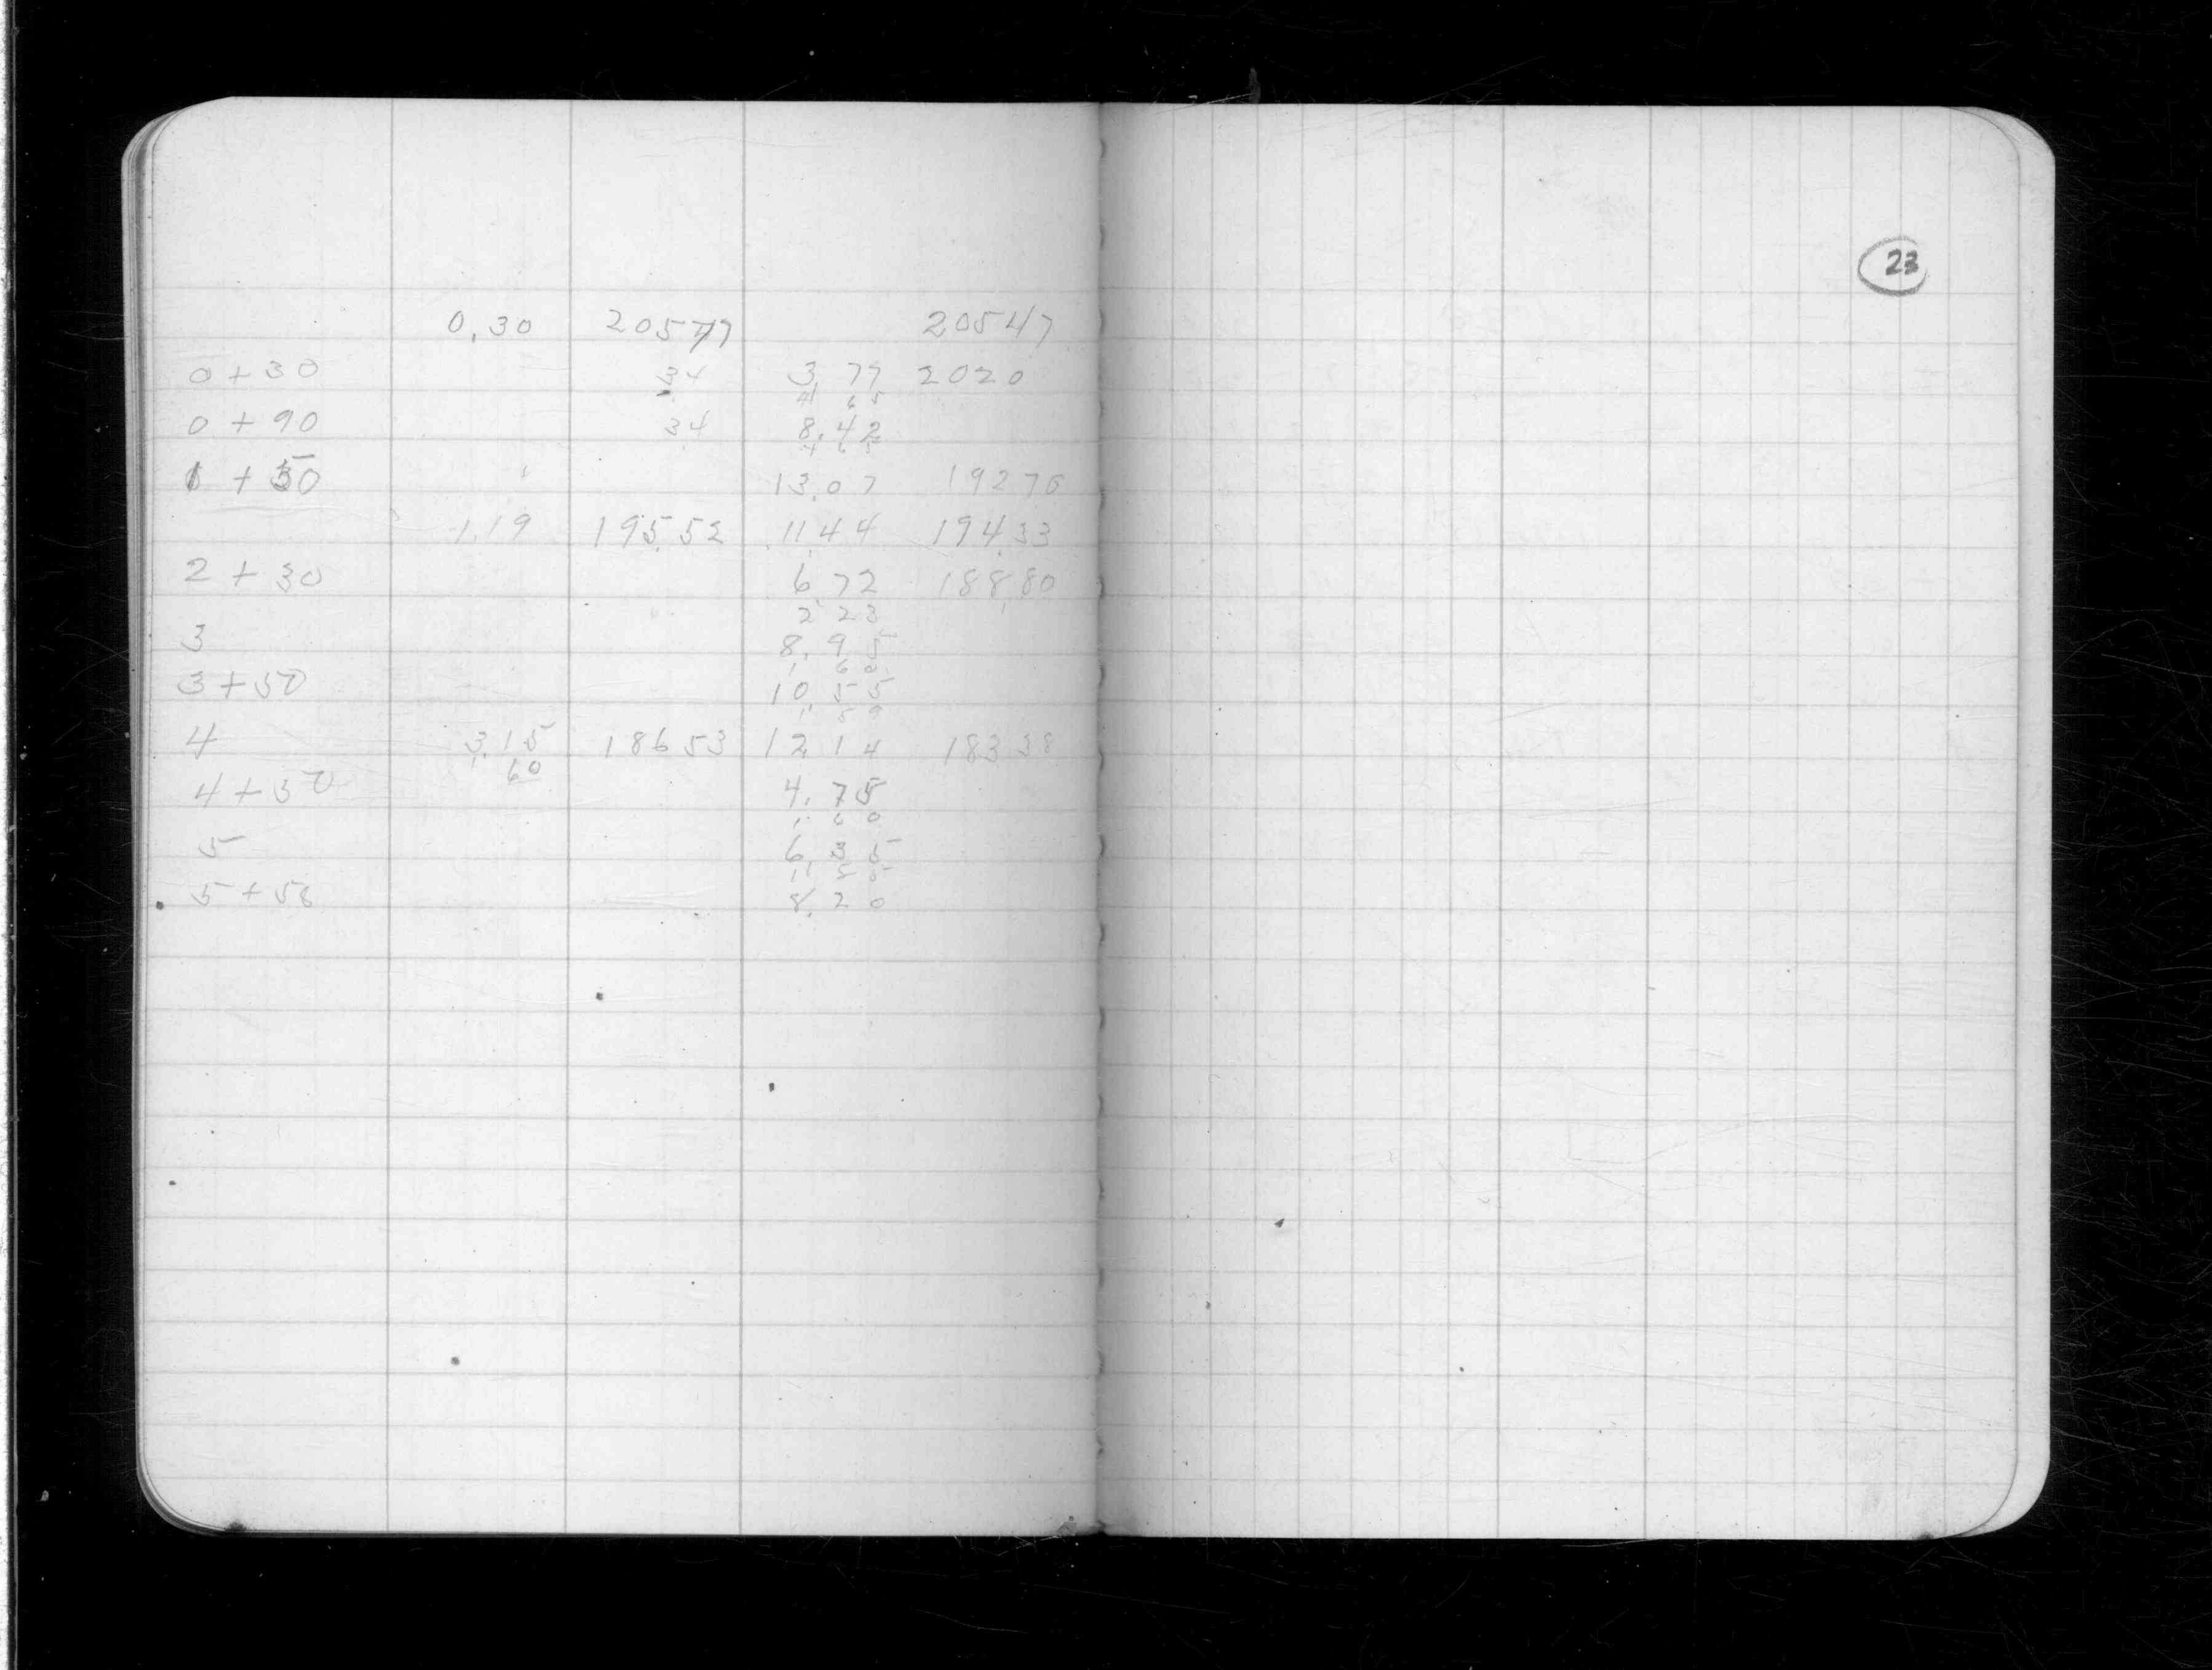 0.30 20577 20547
0+30 34 3.77 2020
4 65
0+90 34 8.42
4 65
1+50 13.07 19270
1.19 195.52 11.44 194.33
2+30 6.72 188.80
2 23
3 8.95
1 60
3+50 10.55
1.59
4 3.15 18653 12.14 18338
1.60
4+50 4.75
1.60
5 6.35
1.85
5+58 8.20
23